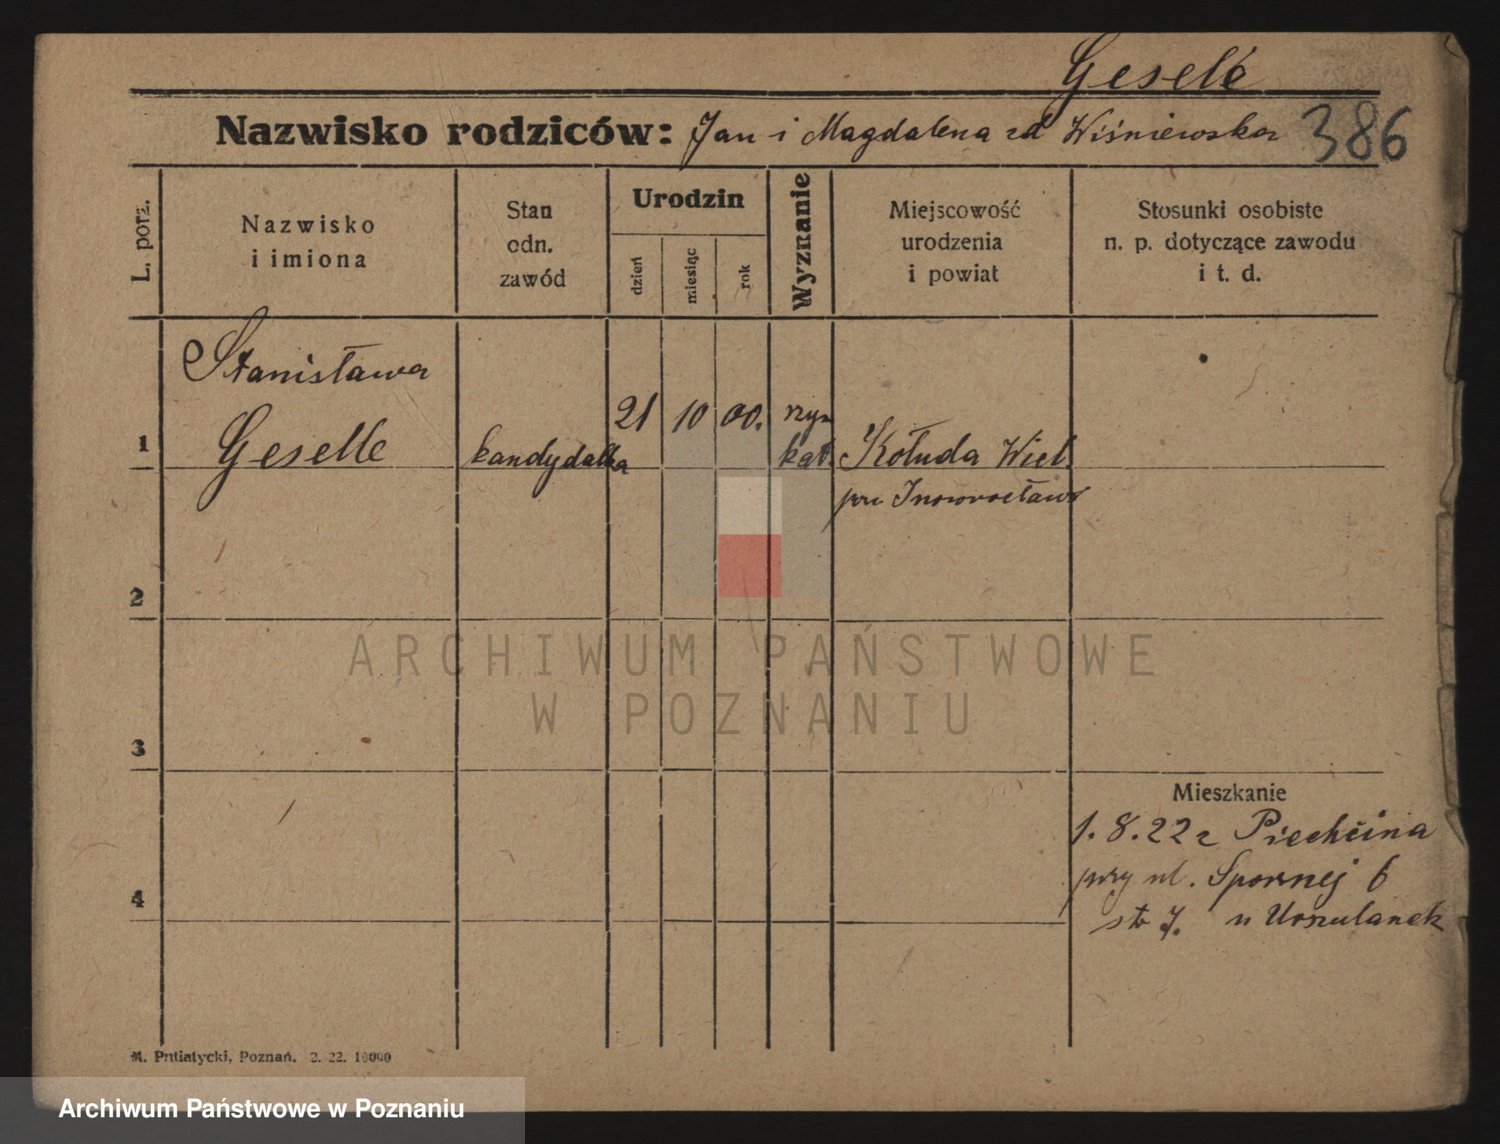 Geselé
Nazwisko rodziców: Jan i Magdalena zd Wiśniewska 386
L. porz.
Nazwisko
i imiona
Stan
odn.
zawód
Urodzin
dzień
miesiąc
rok
Wyznanie
Miejscowość
urodzenia
i powiat
Stosunki osobiste
n. p. dotyczące zawodu
i t. d.
Stanisława
1 Geselle kandydatka 21 10 00. rzym
kat. Kołuda Wiel.
pw Inowrocław
2
ARCHIWUM PAŃSTWOWE
W POZNANIU
3
Mieszkanie
1. 8. 22 z Piechcina
4 przy ul. Spornej 6
u Urszulanek
M. Putiatycki, Poznań. 2. 22. 10000
Archiwum Państwowe w Poznaniu